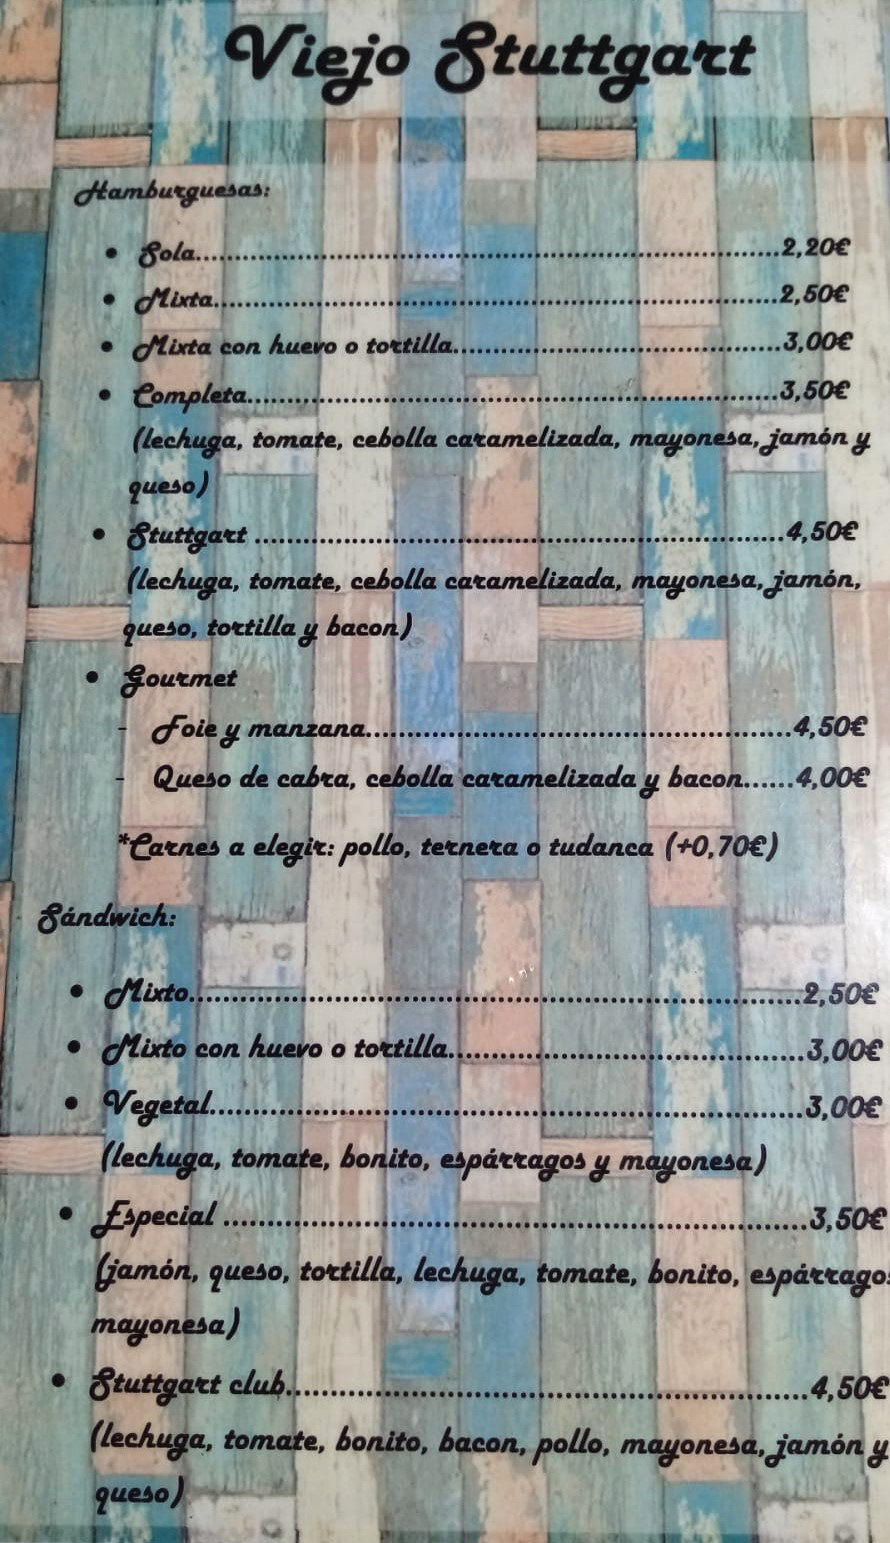 Viejo Stuttgart
Hamburguesas:
• Sola..........................................................................2,20€
• Mixta........................................................................2,50€
• Mixta con huevo o tortilla..........................................3,00€
• Completa...................................................................3,50€
(lechuga, tomate, cebolla caramelizada, mayonesa, jamón y
queso)
• Stuttgart ...................................................................4,50€
(lechuga, tomate, cebolla caramelizada, mayonesa, jamón,
queso, tortilla y bacon)
• Gourmet
- Foie y manzana......................................................4,50€
- Queso de cabra, cebolla caramelizada y bacon......4,00€
*Carnes a elegir: pollo, ternera o tudanca (+0,70€)
Sándwich:
• Mixto........................................................................2,50€
• Mixto con huevo o tortilla..........................................3,00€
• Vegetal......................................................................3,00€
(lechuga, tomate, bonito, espárragos y mayonesa)
• Especial ....................................................................3,50€
(jamón, queso, tortilla, lechuga, tomate, bonito, espárragos
mayonesa)
• Stuttgart club............................................................4,50€
(lechuga, tomate, bonito, bacon, pollo, mayonesa, jamón y
queso)